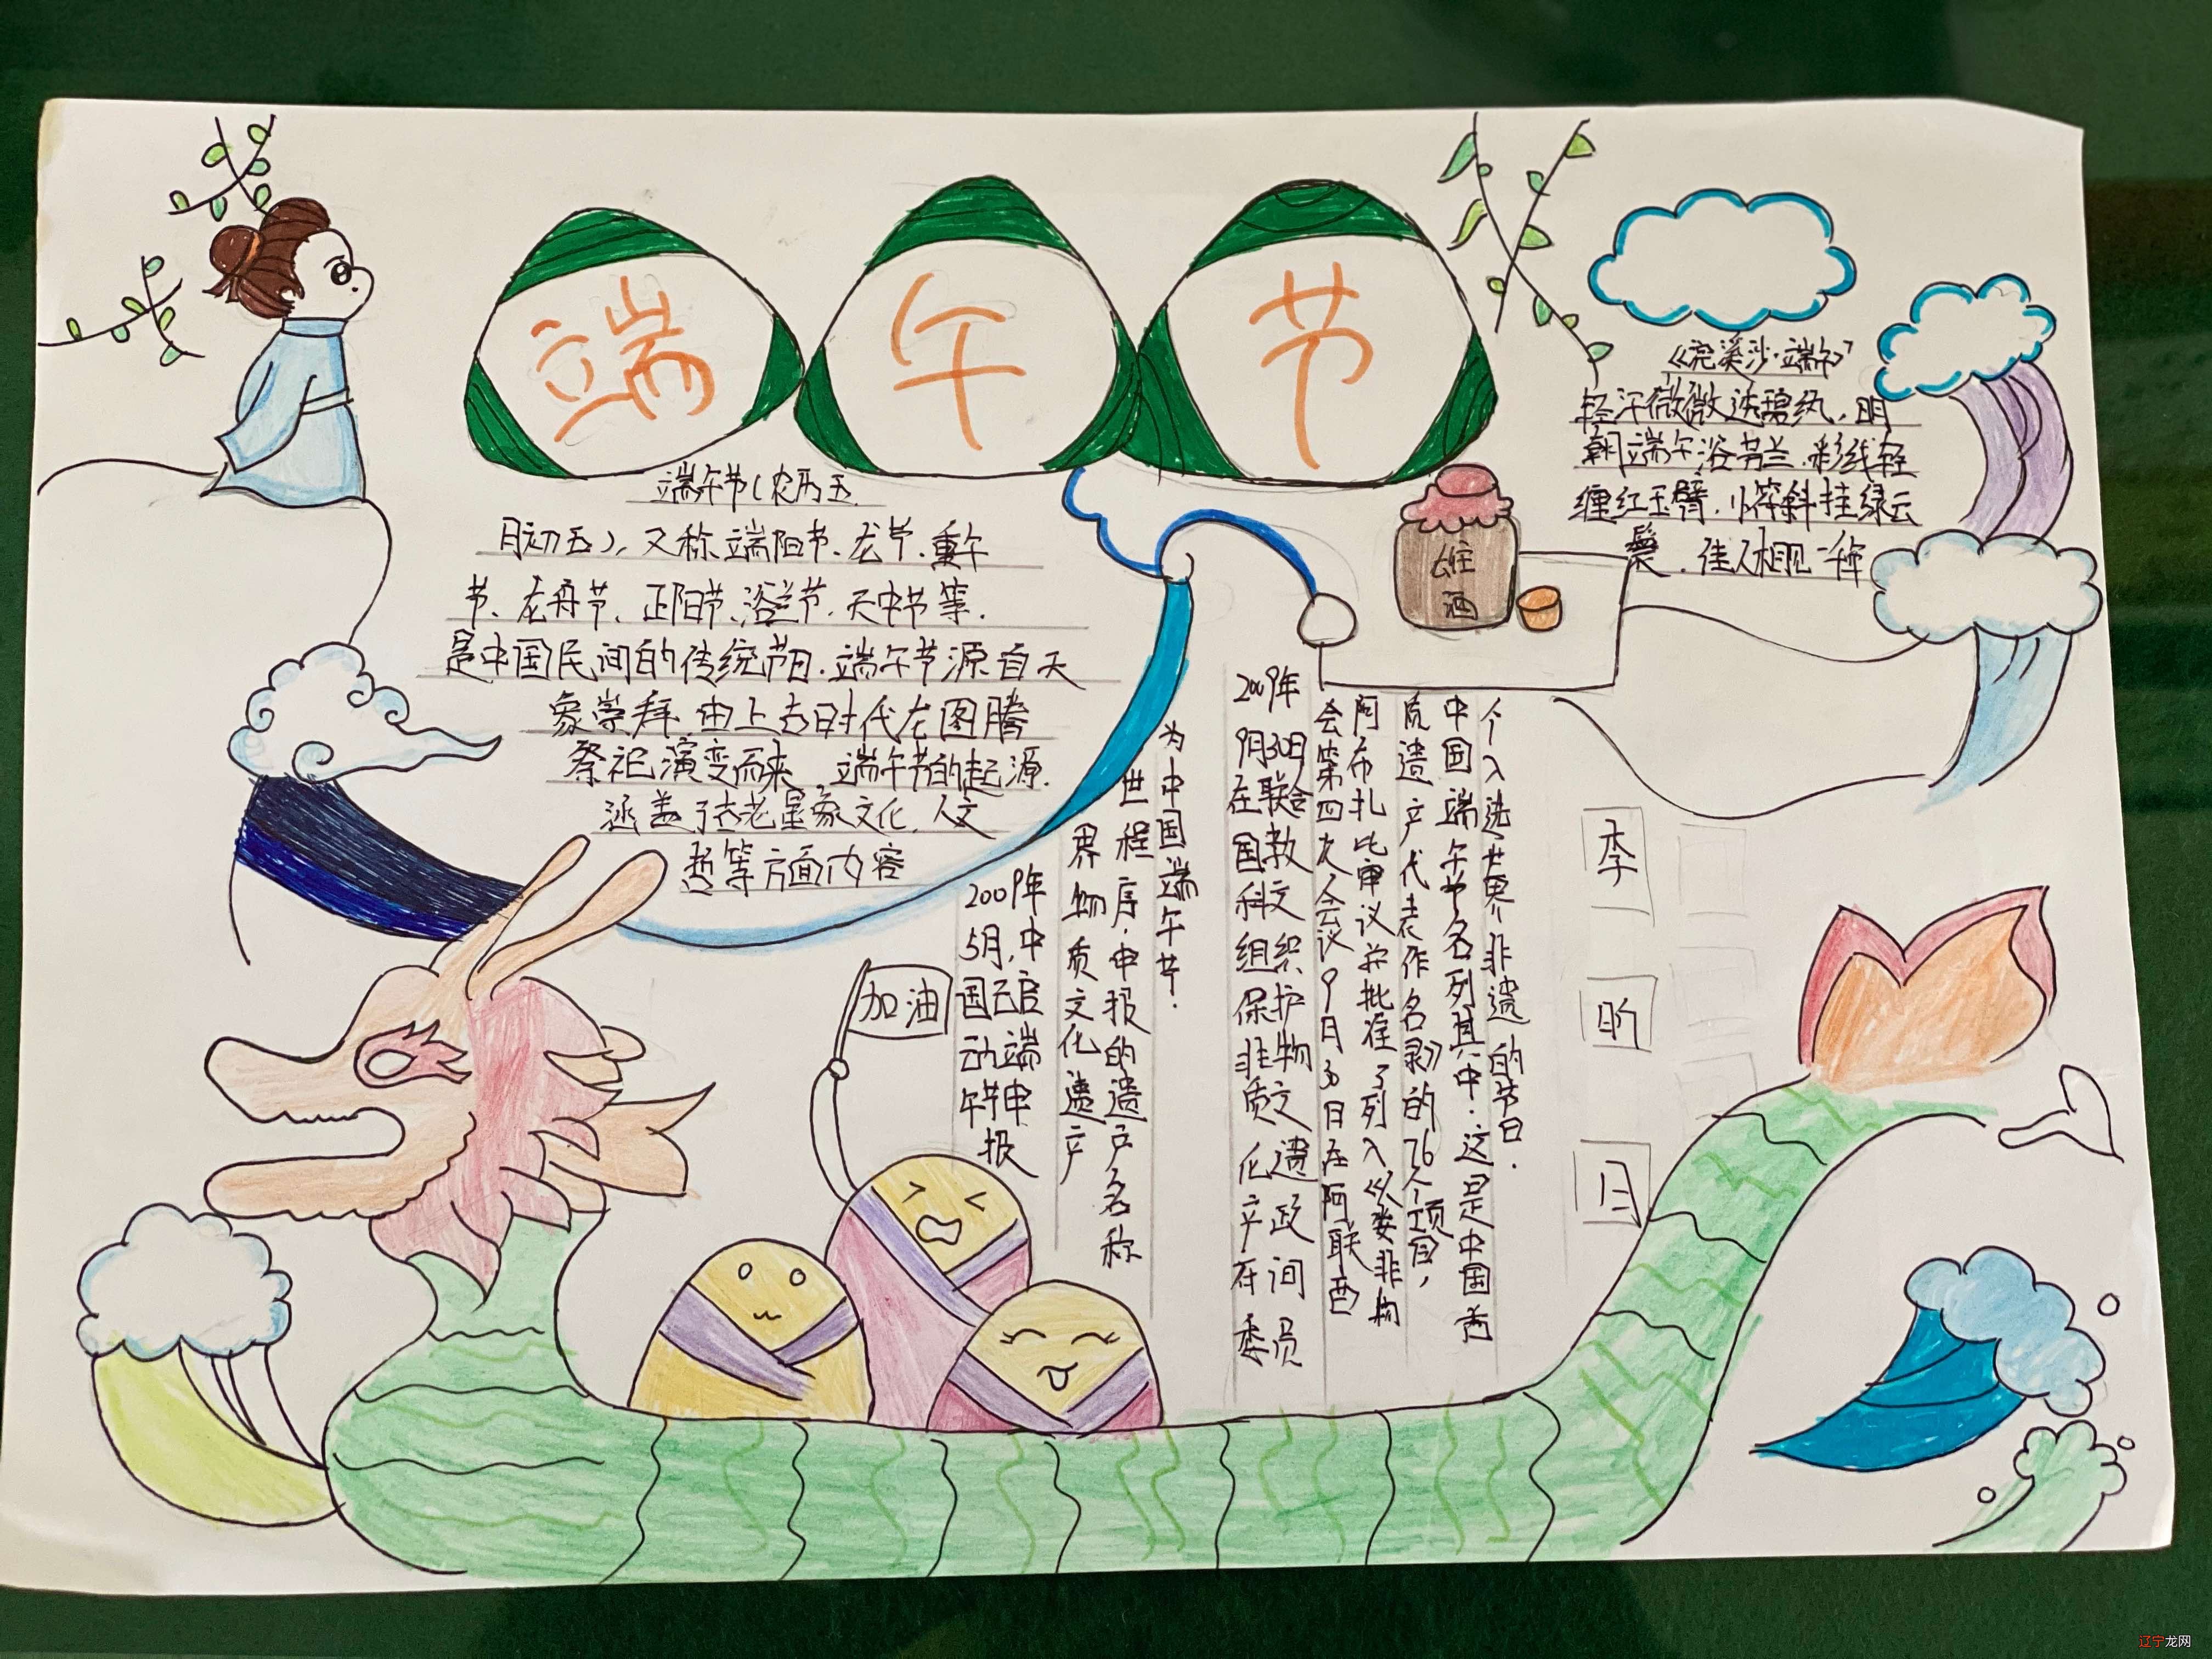 端午节
端午节(农历五
月初五),又称端阳节、龙节、重午
节、龙舟节、正阳节、浴兰节、天中节等.
是中国民间的传统节日.端午节源自天
象崇拜,由上古时代龙图腾
祭祀演变而来.端午节的起源.
涵盖了古老星象文化,人文
哲等方面内容
《浣溪沙·端午》
轻汗微微透碧纨,明
朝端午浴芳兰.彩线轻
缠红玉臂,小符斜挂绿云
鬟.佳人相见一
雄
酒
加油
2009年
5月,中
国启
动端
午节申
报
界物质文化遗产
世程序,申报的遗产名称
为中国端午节.
2009年
9月30日
在联合
国教
科文
组织
保护
非物
质文
化遗
产政
府间
委员
会第四次会议9月30日在阿联酋
阿布扎比审议并批准了列入《人类非物
质遗产代表作名录》的76个项目,
中国端午节名列其中:这是中国首
个入选世界非遗的节日.
李
昕
辽宁龙网